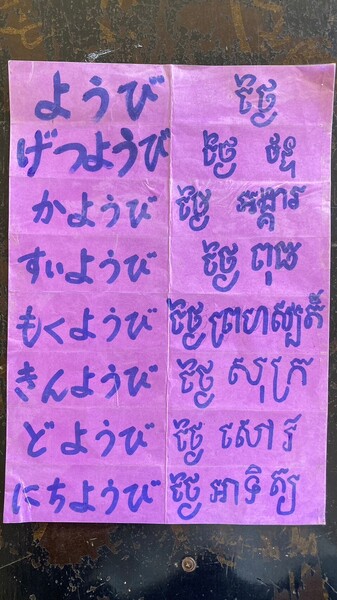 ようび ថ្ងៃ
げつようび ថ្ងៃ ចន្ទ
かようび ថ្ងៃ អង្គារ
すいようび ថ្ងៃ ពុធ
もくようび ថ្ងៃ ព្រហស្បតិ៍
きんようび ថ្ងៃ សុក្រ
どようび ថ្ងៃ សៅរ៍
にちようび ថ្ងៃ អាទិត្យ